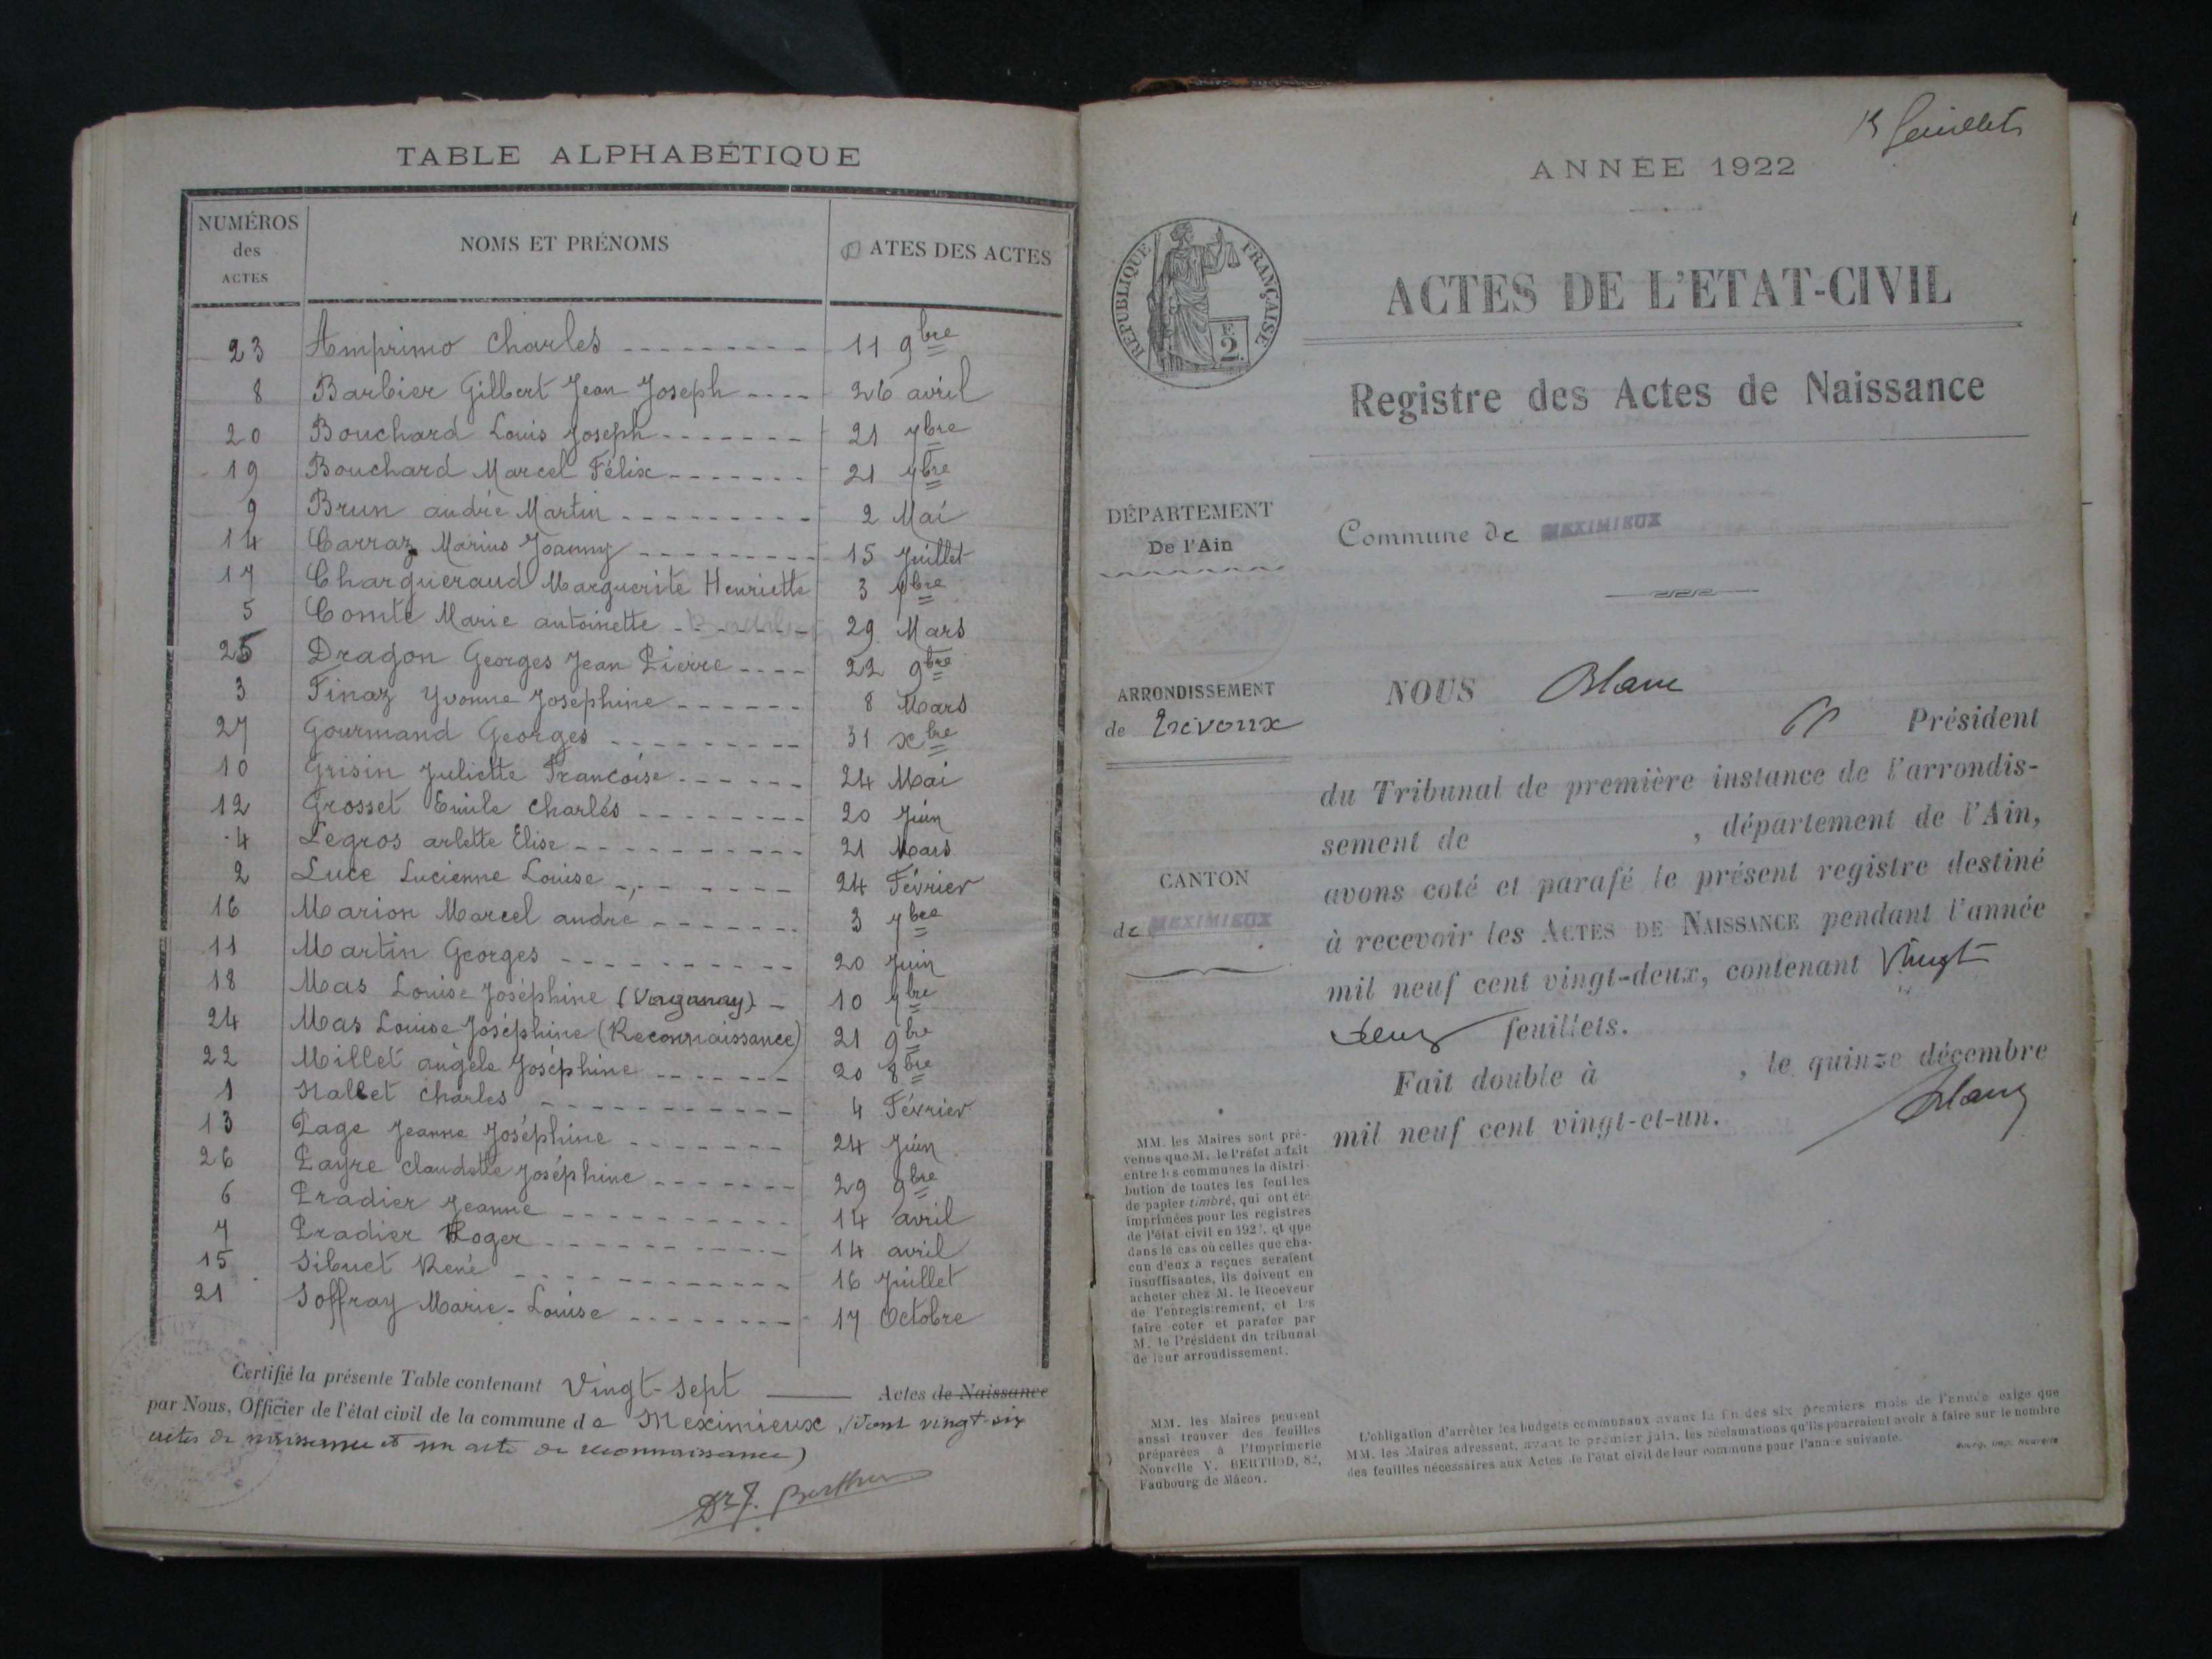 TABLE ALPHABÉTIQUE
NUMÉROS des ACTES NOMS ET PRÉNOMS DATES DES ACTES
23 Amprimo Charles 11 9bre
8 Barbier Gilbert Jean Joseph 26 avril
20 Bouchard Louis Joseph 21 7bre
19 Bouchard Marcel Félix 21 7bre
9 Brun andré Martin 2 Mai
14 Carraz Marius Joanny 15 Juillet
17 Chargueraud Marguerite Henriette 3 7bre
5 Comte Marie antoinette 29 Mars
25 Dragon Georges Jean Pierre 22 9bre
3 Finaz Yvonne Joséphine 8 Mars
27 Gourmand Georges 31 xbre
10 Grisin Juliette Françoise 24 Mai
12 Grosset Emile Charles 20 Juin
4 Legros arlette Elise 21 Mars
2 Luce Lucienne Louise 24 Février
16 Marion Marcel andré 3 7bre
11 Martin Georges 20 Juin
18 Mas Louise Joséphine (Vaganay) 10 7bre
24 Mas Louise Joséphine (Reconnaissance) 21 9bre
22 Millet angèle Joséphine 20 8bre
1 Nallet Charles 4 Février
13 Page Jeanne Joséphine 24 Juin
26 Payre Claudette Joséphine 29 9bre
6 Pradier Jeanne 14 avril
7 Pradier Roger 14 avril
15 Sibuet René 16 Juillet
21 Soffray Marie-Louise 17 Octobre
Certifié la présente Table contenant Vingt-sept Actes de Naissance
par Nous, Officier de l'état civil de la commune de Meximieux, (dont vingt-six
actes de naissance et un acte de reconnaissance)
Dr J. Berthier
feuillets
ANNÉE 1922
RÉPUBLIQUE FRANÇAISE
2
ACTES DE L'ETAT-CIVIL
Registre des Actes de Naissance
DÉPARTEMENT
De l'Ain
Commune de MEXIMIEUX
ARRONDISSEMENT
de Trévoux
NOUS Blanc
Président
du Tribunal de première instance de l'arrondis-
sement de , département de l'Ain,
CANTON
de MEXIMIEUX
avons coté et parafé le présent registre destiné
à recevoir les ACTES DE NAISSANCE pendant l'année
mil neuf cent vingt-deux, contenant Vingt
deux feuillets.
Fait double à , le quinze décembre
mil neuf cent vingt-et-un.
Blanc
MM. les Maires sont pré-
venus que M. le Préfet a fait
entre les communes la distri-
bution de toutes les feuilles
de papier timbré, qui ont été
imprimées pour les registres
de l'état civil en 1922, et que
dans le cas où celles que cha-
cun d'eux a reçues seraient
insuffisantes, ils doivent en
acheter chez M. le Receveur
de l'enregistrement, et les
faire coter et parafer par
M. le Président du tribunal
de leur arrondissement.
MM. les Maires peuvent
aussi trouver des feuilles
préparées à l'Imprimerie
Nouvelle V. BERTHOD, 82,
Faubourg de Mâcon.
L'obligation d'arrêter les budgets communaux avant la fin des six premiers mois de l'année exige que
MM. les Maires adressent, avant le premier juin, les réclamations qu'ils pourraient avoir à faire sur le nombre
des feuilles nécessaires aux Actes de l'état civil de leur commune pour l'année suivante.
Bourg, Imp. Nouvelle